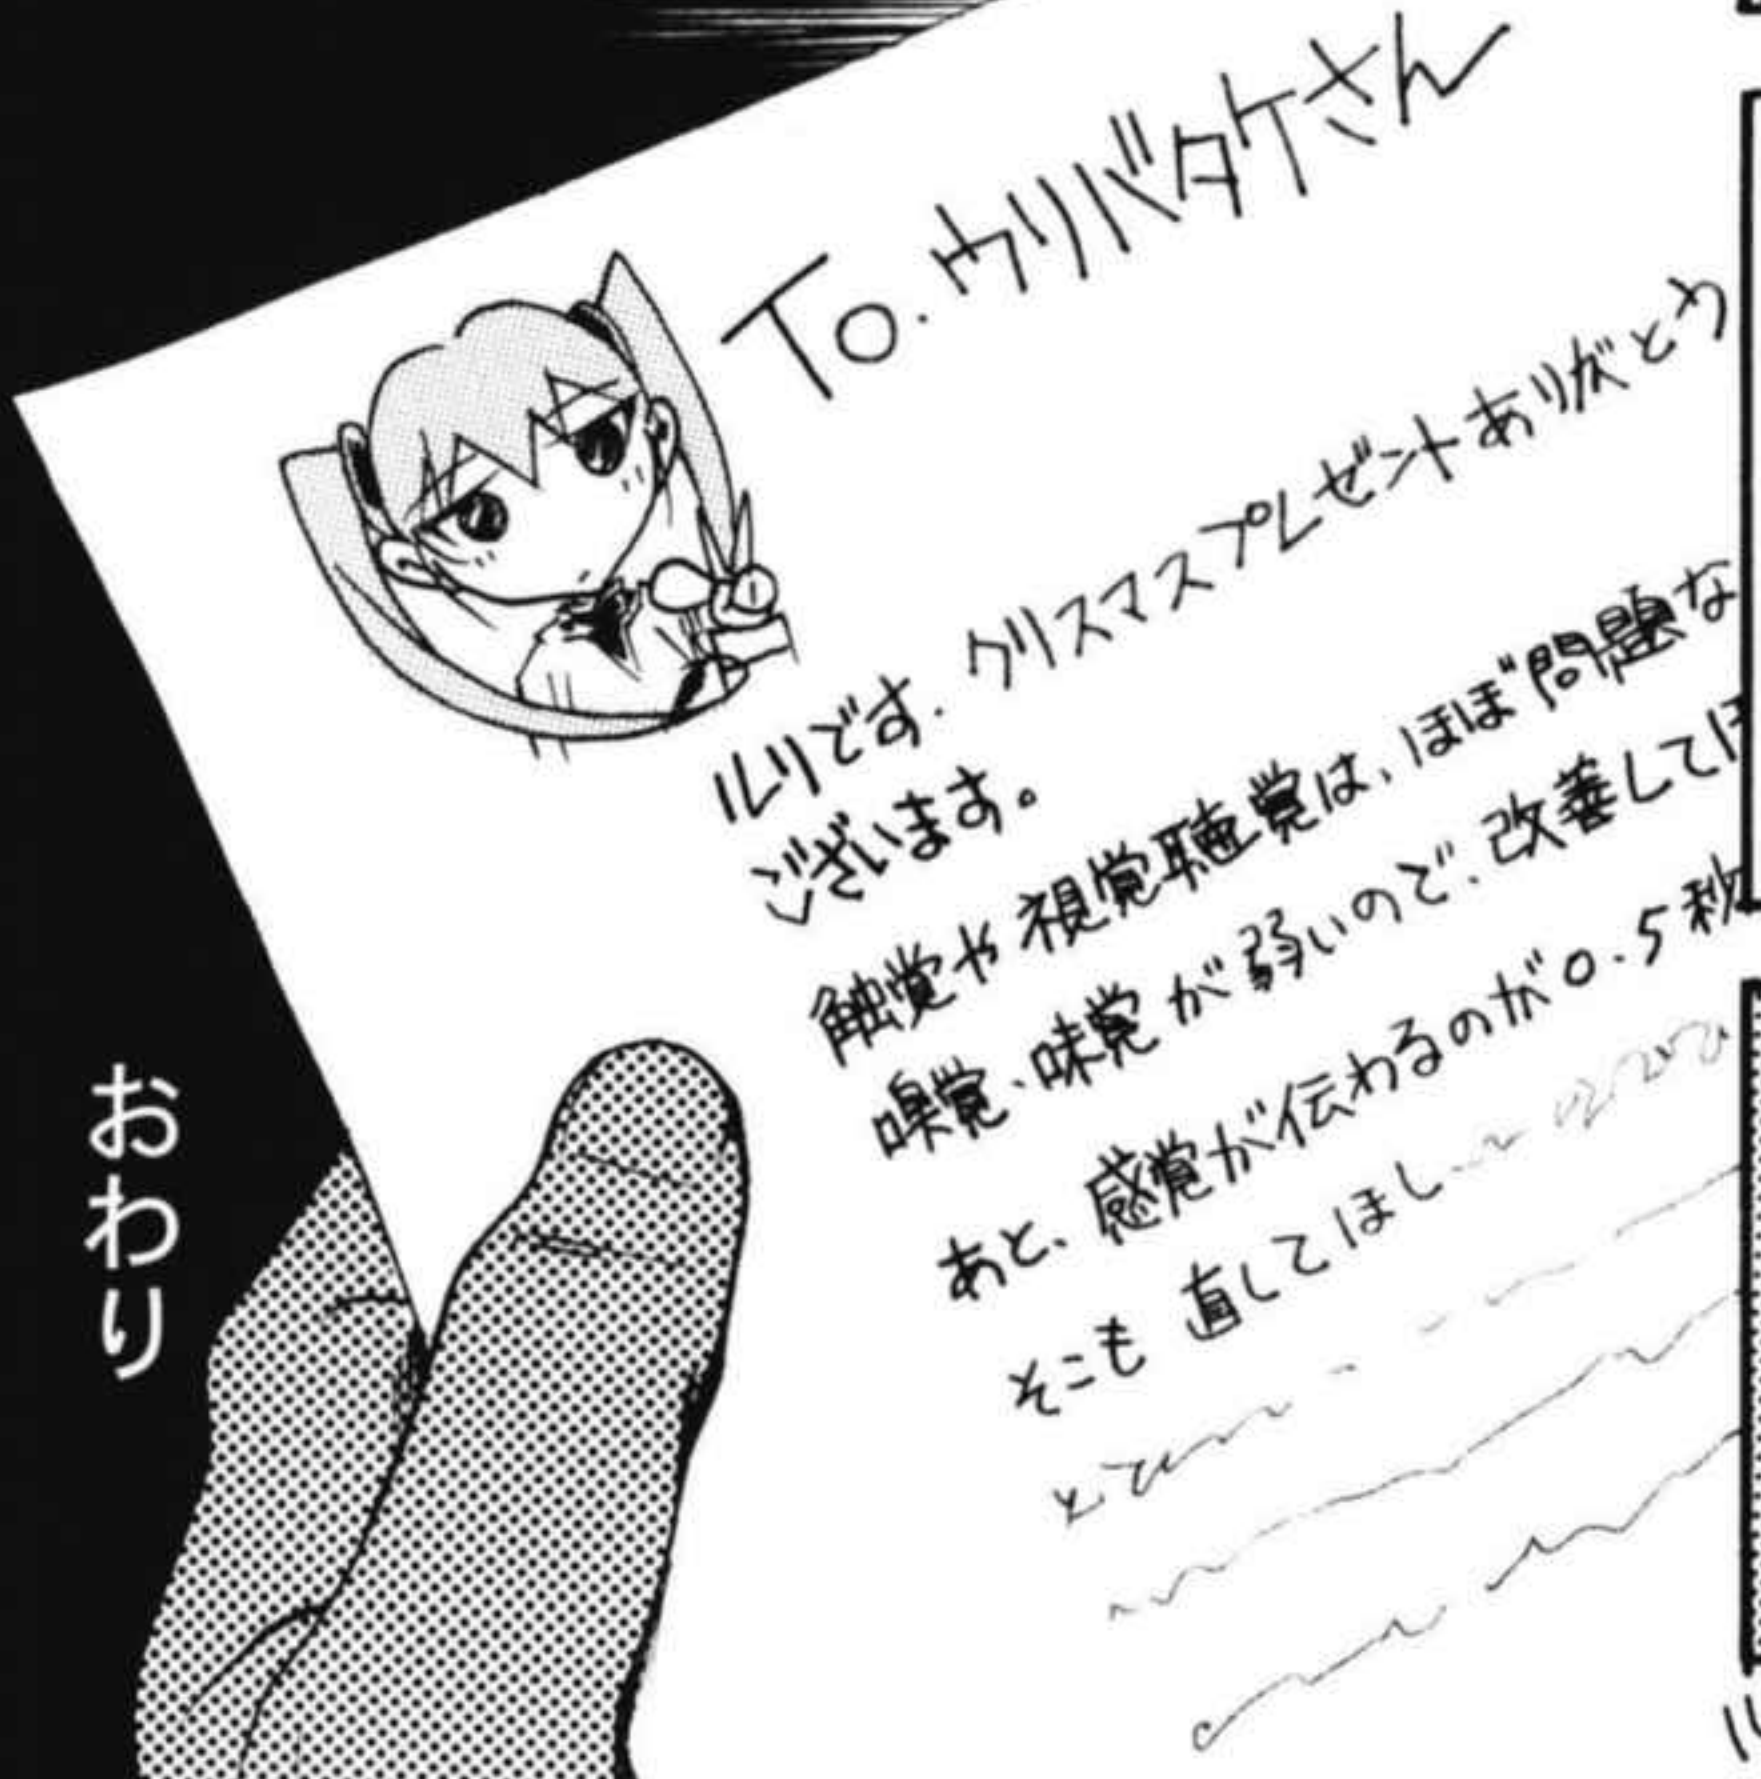 To.ウリバタケさん
ルリです.クリスマスプレゼントありがとう
ございます。
触覚や視覚聴覚は、ほぼ問題な
嗅覚、味覚が弱いので、改善してほ
あと、感覚が伝わるのが0.5秒
そこも直してほし
おわり